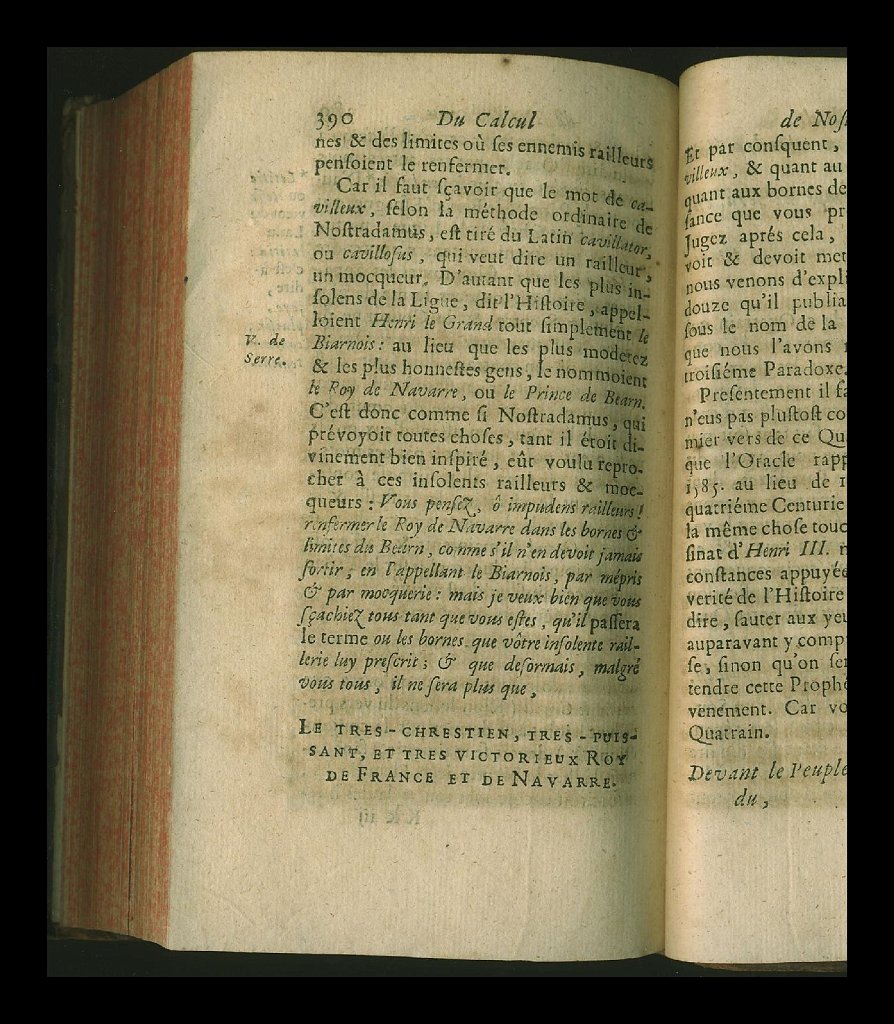 390 Du Calcul
nes & des limites où ses ennemis railleurs
pensoient le renfermer.
Car il faut sçavoir que le mot de ca-
villeux, selon la méthode ordinaire de
Nostradamus, est tiré du Latin cavillator,
ou cavillosus, qui veut dire un railleur,
un mocqueur. D'autant que les plus in-
solens de la Ligue, dit l'Histoire, appel-
loient Henri le Grand tout simplement le
V. de
Serre.
Biarnois: au lieu que les plus moderez
& les plus honnestes gens, le nommoient
le Roy de Navarre, ou le Prince de Bearn.
C'est donc comme si Nostradamus, qui
prévoyoit toutes choses, tant il étoit di-
vinement bien inspiré, eût voulu repro-
cher à ces insolents railleurs & moc-
queurs: Vous pensez, ô impudens railleurs!
renfermer le Roy de Navarre dans les bornes &
limites du Bearn, comme s'il n'en devoit jamais
sortir; en l'appellant le Biarnois, par mépris
& par mocquerie: mais je veux bien que vous
sçachiez tous tant que vous estes, qu'il passera
le terme ou les bornes que vôtre insolente rail-
lerie luy prescrit; & que desormais, malgré
vous tous, il ne sera plus que,
LE TRES-CHRESTIEN, TRES-PUIS-
SANT, ET TRES VICTORIEUX ROY
DE FRANCE ET DE NAVARRE.
de Nos
Et par consquent,
villeux, & quant au
quant aux bornes de
sance que vous pr
Jugez aprés cela,
voit & devoit met
nous venons d'expli
douze qu'il publia
sous le nom de la
que nous l'avons
troisiéme Paradoxe.
Presentement il fa
n'eus pas plustost co
mier vers de ce Qu
que l'Oracle rapp
1585. au lieu de 1
quatriéme Centurie
la même chose touc
sinat d'Henri III.
constances appuyée
verité de l'Histoire
dire, sauter aux yeu
auparavant y comp
se, sinon qu'on ser
tendre cette Prophé
venement. Car vo
Quatrain.
Devant le Peuple
du,